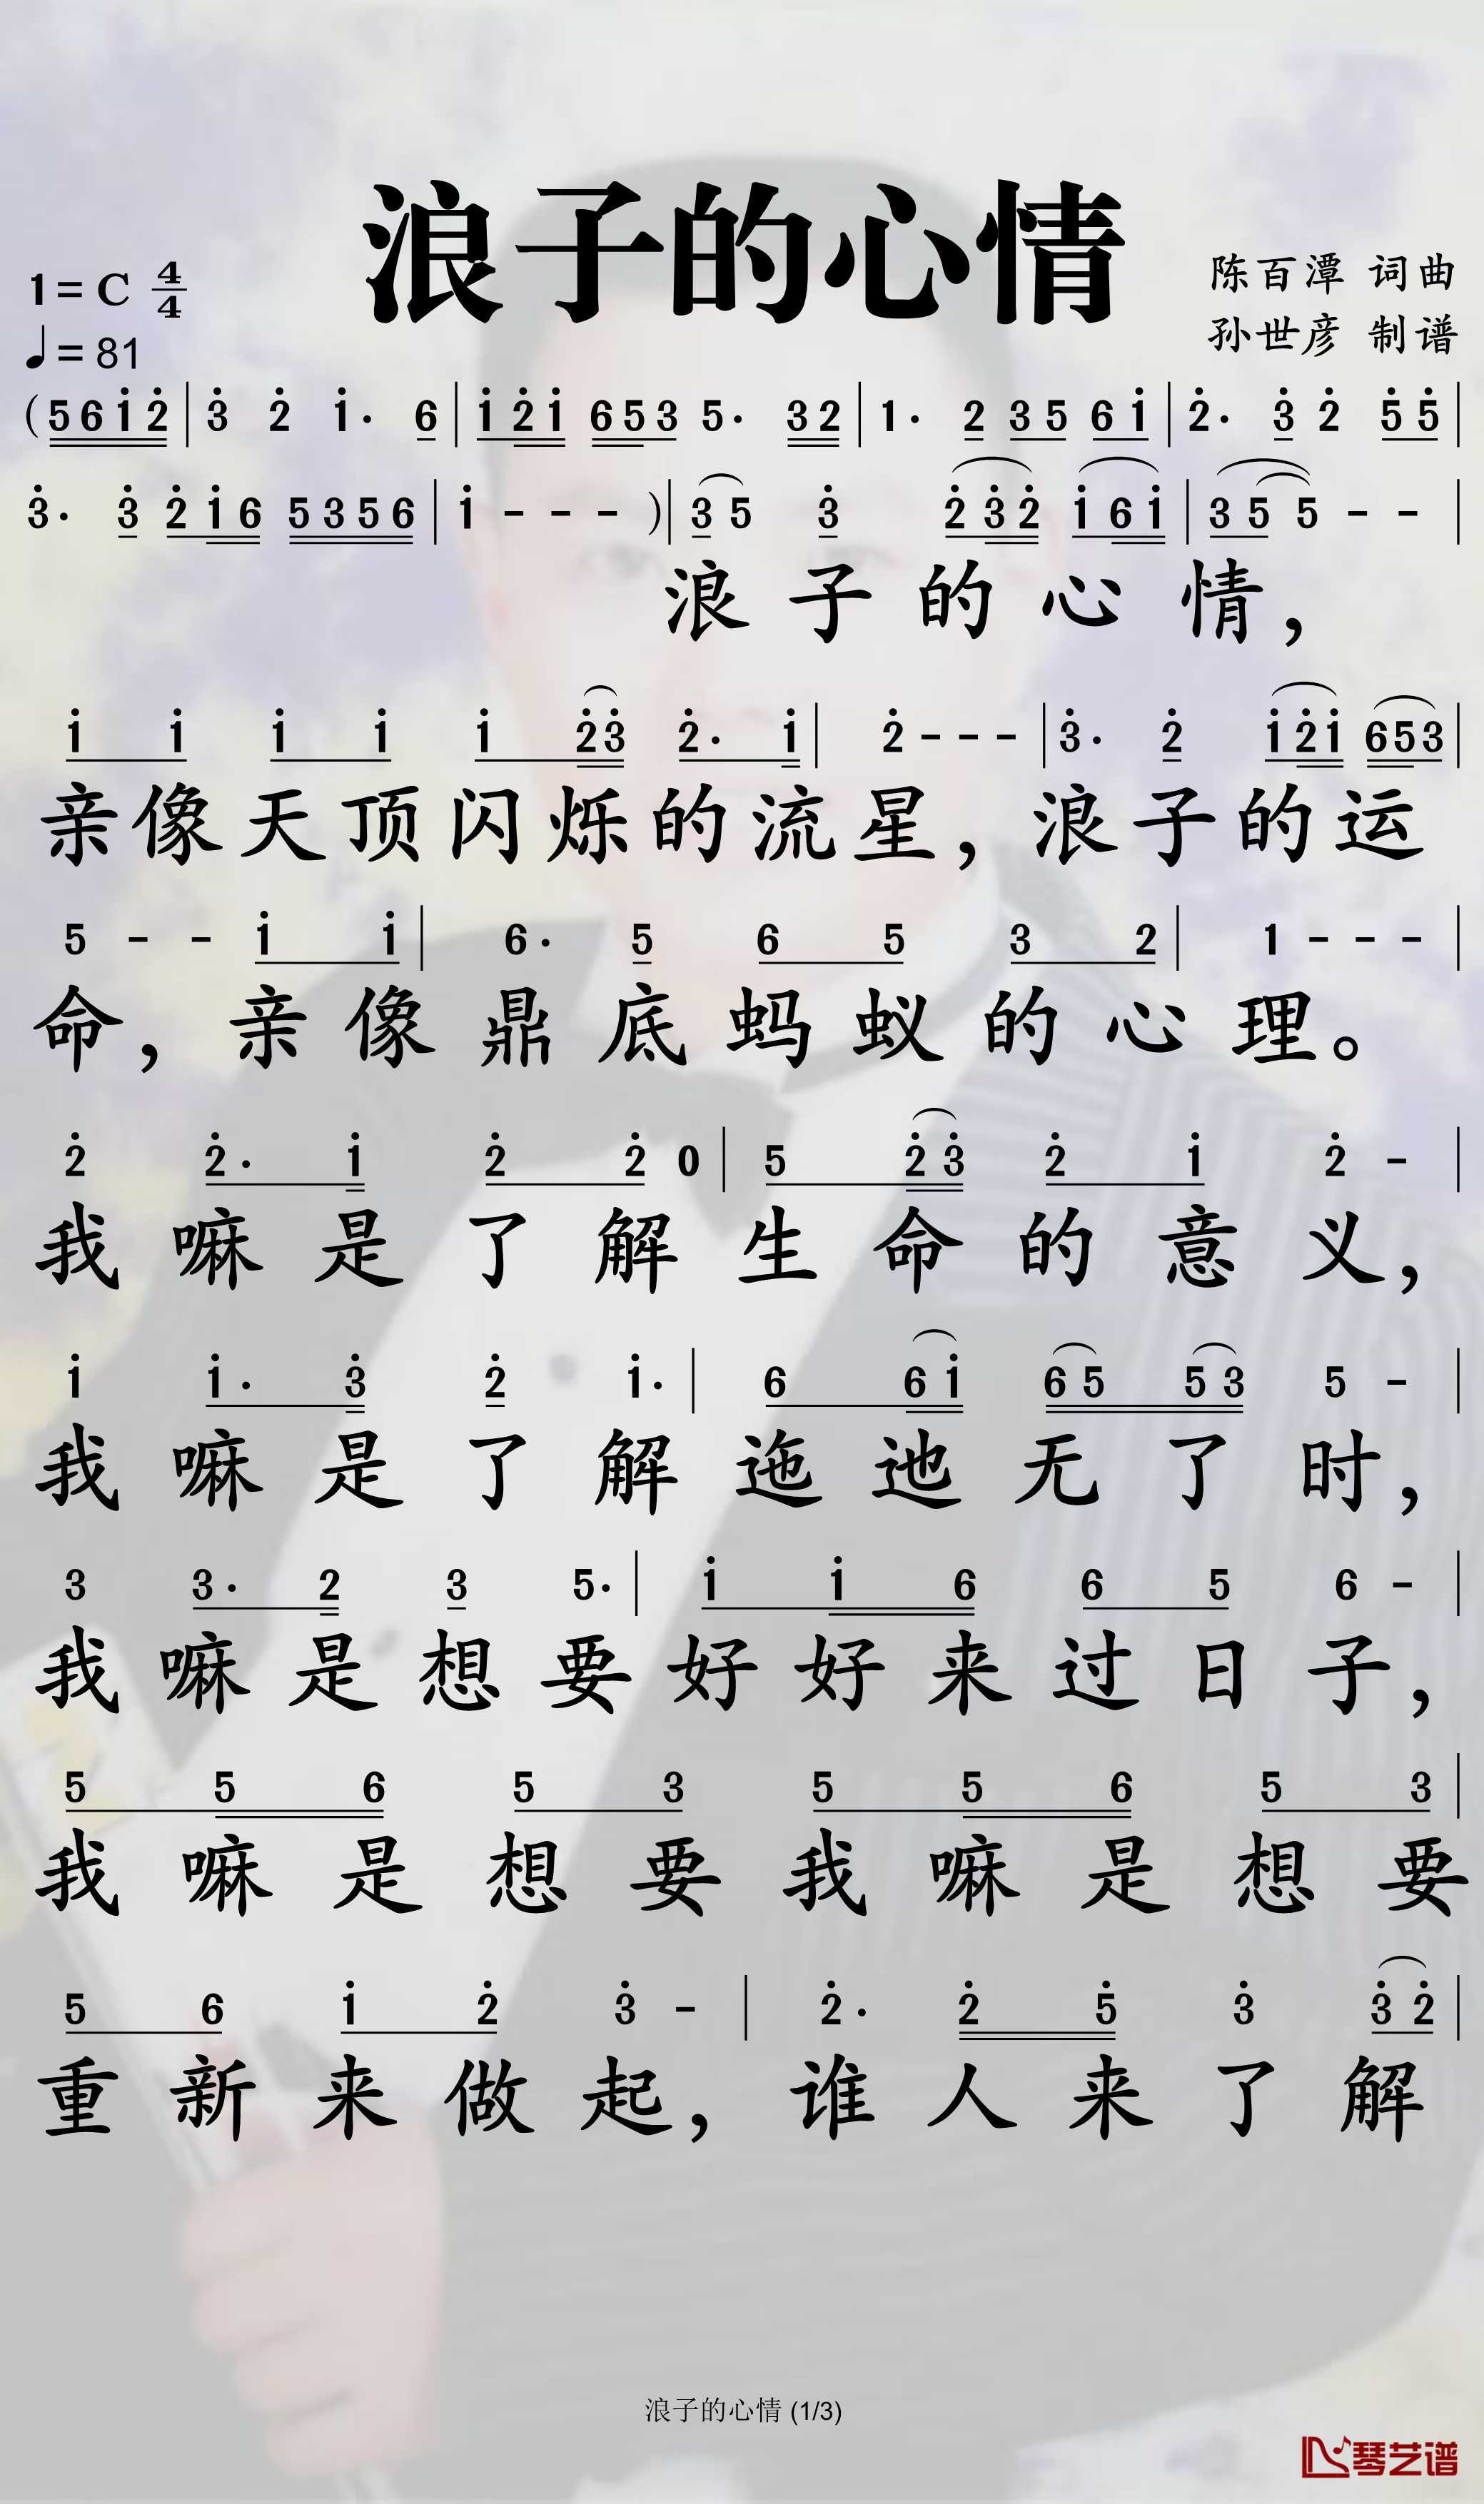 浪子的心情
1=C 4/4
♩=81
陈百潭 词曲
孙世彦 制谱
(5 6 1̇ 2̇ | 3̇ 2̇ 1̇· 6 | 1̇ 2̇ 1̇ 6 5 3 5· 3 2 | 1· 2 3 5 6 1̇ | 2̇· 3̇ 2̇ 5̇ 5̇ |
3̇· 3̇ 2̇ 1̇ 6 5 3 5 6 | 1̇ - - - )| 3 5 3̇ 2̇ 3̇ 2̇ 1̇ 6 1̇ | 3 5 5 - - |
浪子的心情，
1̇ 1̇ 1̇ 1̇ 1̇ 2̇ 3̇ 2̇· 1̇ | 2̇ - - - | 3̇· 2̇ 1̇ 2̇ 1̇ 6 5 3 |
亲像天顶闪烁的流星，浪子的运
5 - - 1̇ 1̇ | 6· 5 6 5 3 2 | 1 - - - |
命，亲像鼎底蚂蚁的心理。
2̇ 2̇· 1̇ 2̇ 2̇ 0 | 5 2̇ 3̇ 2̇ 1̇ 2̇ - |
我嘛是了解生命的意义，
1̇ 1̇· 3̇ 2̇ 1̇· | 6 6 1̇ 6 5 5 3 5 - |
我嘛是了解迤迆无了时，
3 3· 2 3 5· | 1̇ 1̇ 6 6 5 6 - |
我嘛是想要好好来过日子，
5 5 6 5 3 5 5 6 5 3 |
我嘛是想要我嘛是想要
5 6 1̇ 2̇ 3̇ - | 2̇· 2̇ 5̇ 3̇ 3̇ 2̇ |
重新来做起，谁人来了解
浪子的心情 (1/3)
琴艺谱